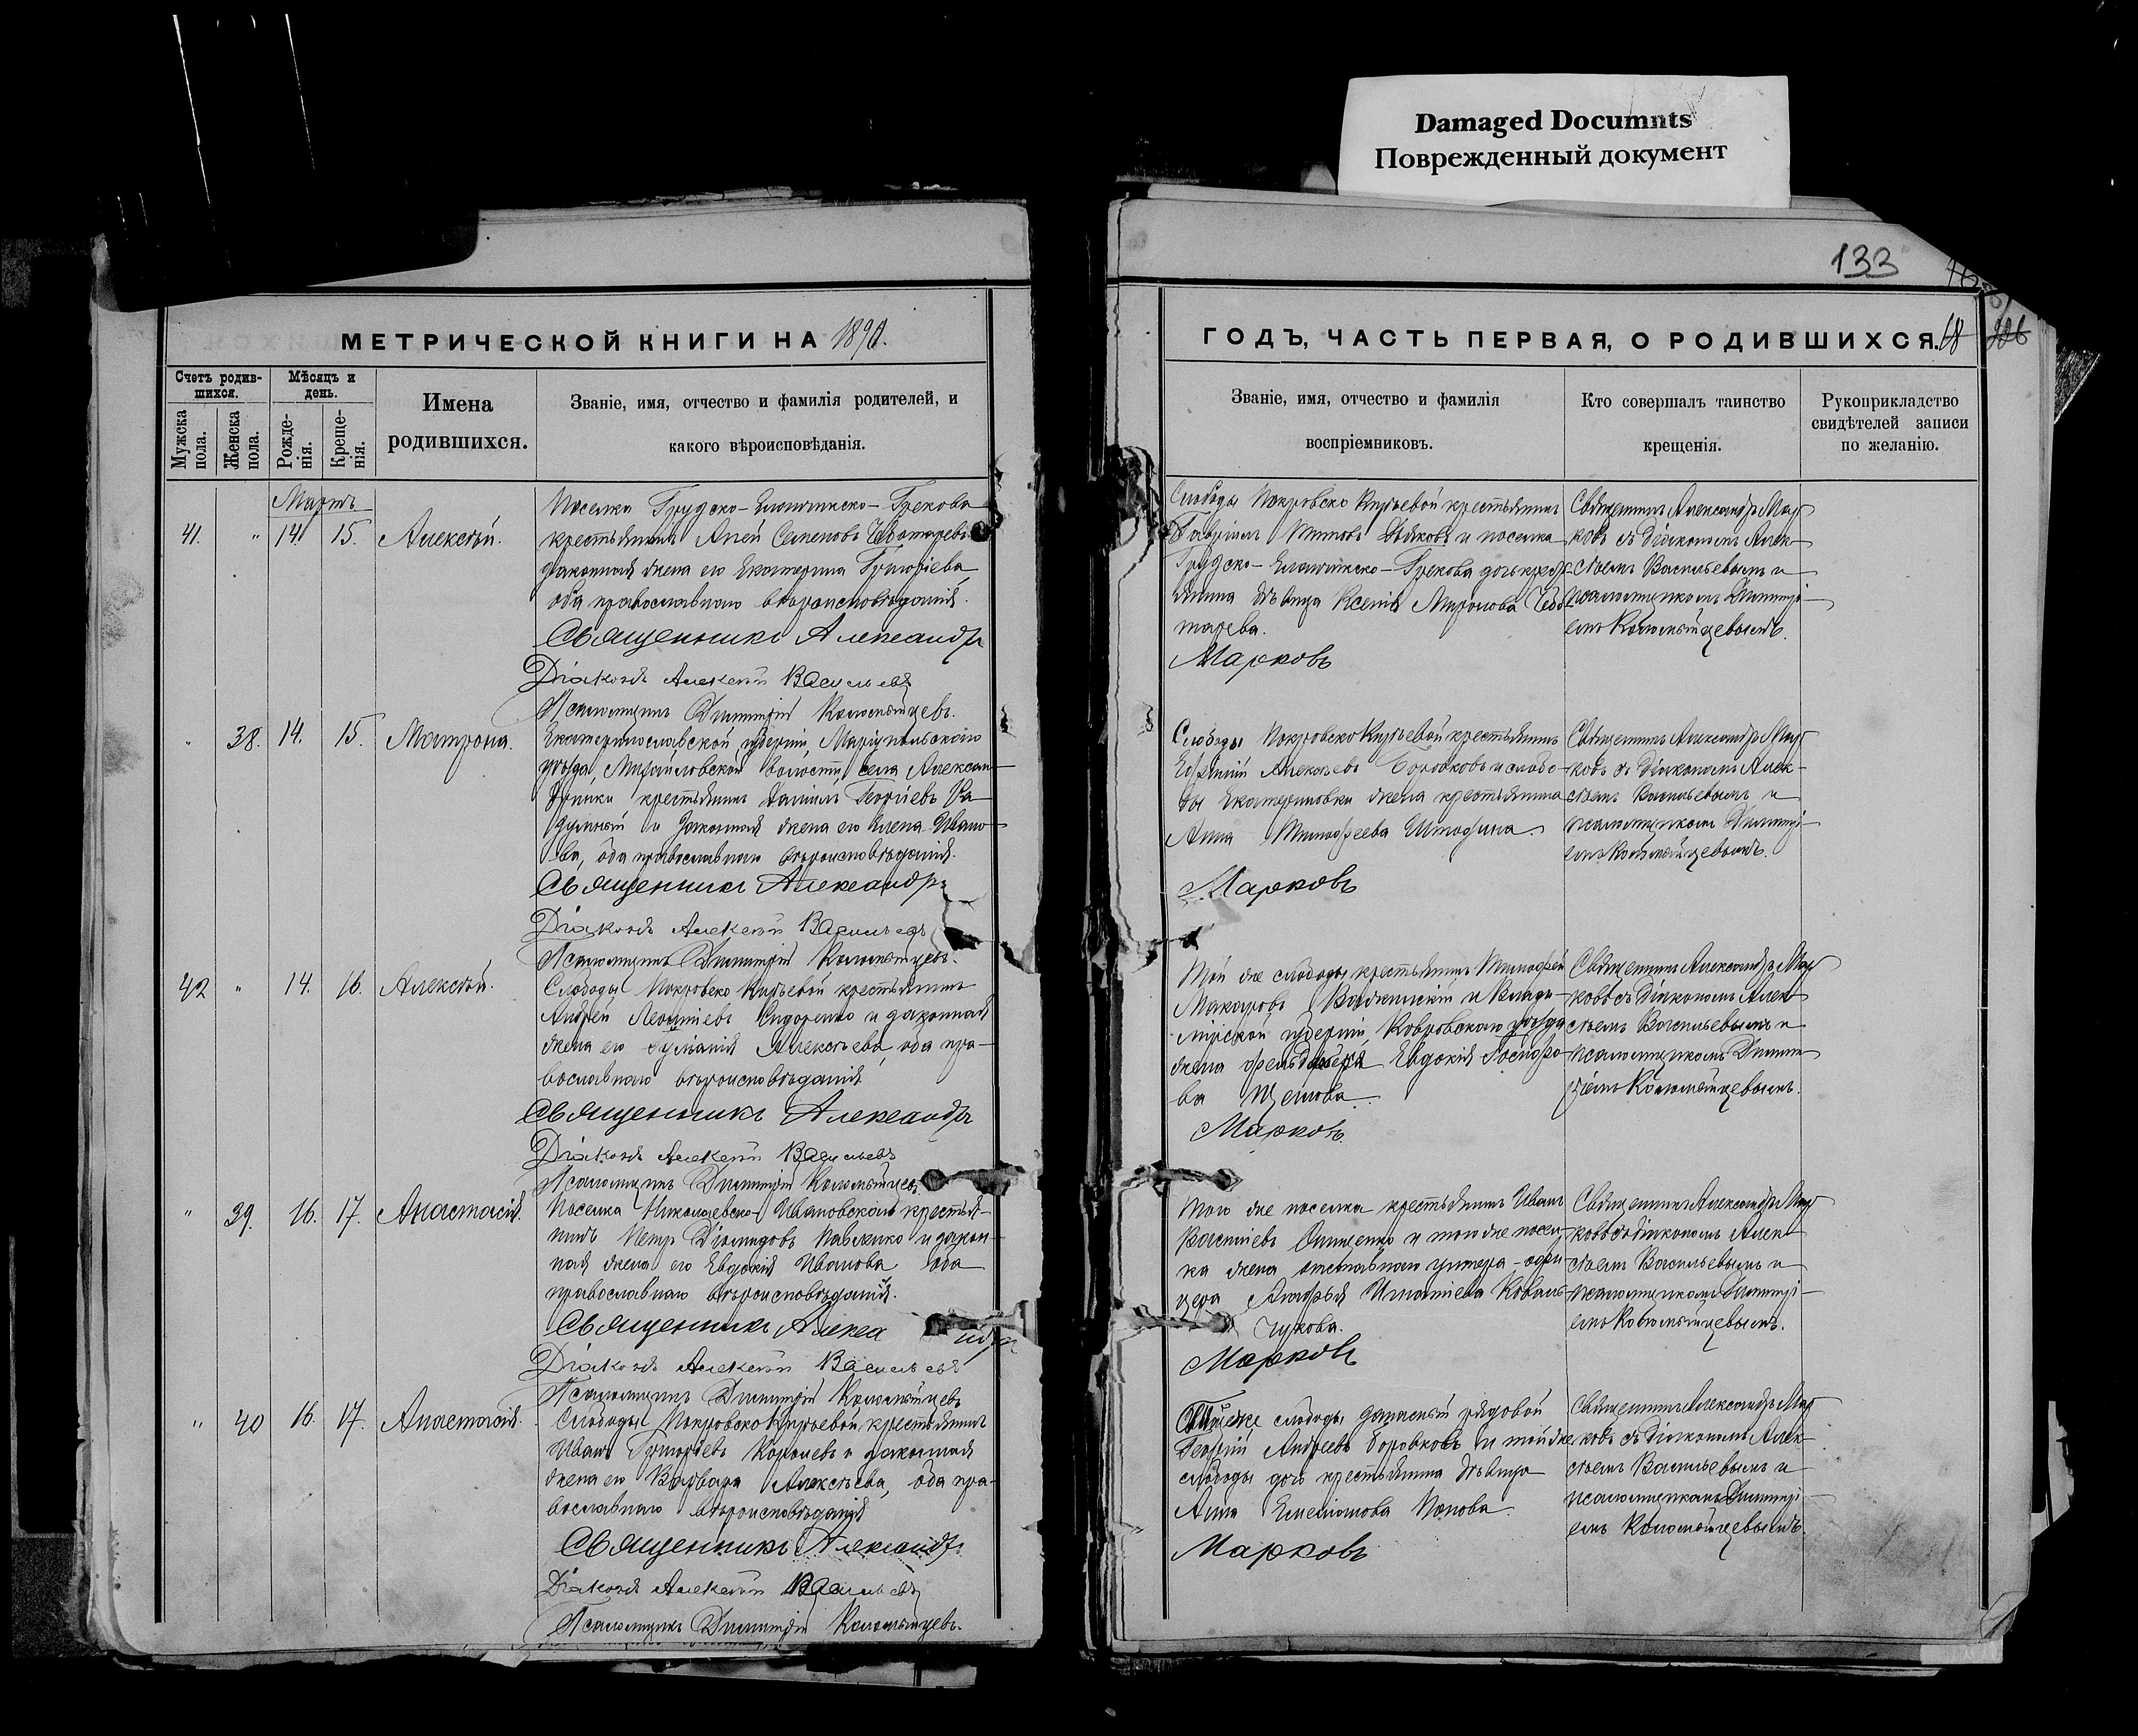 Damaged Documnts
Поврежденный документ
133
МЕТРИЧЕСКОЙ КНИГИ НА 1890.
ГОДЪ, ЧАСТЬ ПЕРВАЯ, О РОДИВШИХСЯ.
Счетъ родив-
шихся.
Мужска
пола.
Женска
пола.
Мѣсяцъ и
день.
Рожде-
нія.
Креще-
нія.
Имена
родившихся.
Званіе, имя, отчество и фамилія родителей, и
какого вѣроисповѣданія.
Званіе, имя, отчество и фамилія
воспріемниковъ.
Кто совершалъ таинство
крещенія.
Рукоприкладство
свидѣтелей записи
по желанію.
Мартъ
41. " 14. 15. Алексѣй.
Поселка Грудско-Еланчикско-Грекова
крестьянинъ Семеновъ Чеботаревъ
законная жена его Екатерина Григоріева
оба православнаго вѣроисповѣданія.
Священникъ Александръ
Діаконъ Алексѣй Васильевъ
Псаломщикъ Димитрій Коломѣйцевъ.
Слободы Покровско Кирѣевой крестьянинъ
Гавріилъ и поселка
Грудско-Еланчикско-Грекова дочь крес
янина дѣвица Ксенія Миронова Чебо-
тарева.
Марковъ
Священникъ Александръ Мар
ковъ съ діакономъ Алек-
сѣемъ Васильевымъ и
псаломщикомъ Димитрі-
емъ Коломѣйцевымъ.
" 38. 14. 15. Матрона.
Екатеринославской губерніи, Маріупольскаго
уѣзда, Михайловской волости, села Алексан-
дринки крестьянинъ Даніилъ Георгіевъ
и законная жена его Елена Ивано-
ва, оба православнаго вѣроисповѣданія.
Священникъ Александръ
Діаконъ Алексѣй Васильевъ
Псаломщикъ Димитрій Коломѣйцевъ.
Слободы Покровско Кирѣевой крестьянинъ
Алексѣевъ Боровковъ и слобо-
ды Екатериновки жена крестьянина
Анна Тимофеева
Марковъ
Священникъ Александръ Мар
ковъ съ діакономъ Алек-
сѣемъ Васильевымъ и
псаломщикомъ Димитрі-
емъ Коломѣйцевымъ.
42 " 14. 16. Алексѣй.
Слободы Покровско Кирѣевой крестьянинъ
Андрей Леонтіевъ Сидоренко и законная
жена его Алексѣева, оба пра-
вославнаго вѣроисповѣданія
Священникъ Александръ
Діаконъ Алексѣй Васильевъ
Псаломщикъ Димитрій Коломѣйцевъ.
Той же слободы крестьянинъ Тимофей
Макаровъ и Влади-
мірской губерніи, Ковровскаго уѣзда
жена фельдшера Евдокія
ва
Марковъ
Священникъ Александръ Мар
ковъ съ діакономъ Алек
сѣемъ Васильевымъ и
псаломщикомъ Димит
ріемъ Коломѣйцевымъ.
" 39. 16. 17. Анастасія.
Поселка Николаевско-Ивановскаго крестья-
нинъ Петръ Діомидовъ Павленко и закон-
ная жена его Евдокія Иванова оба
православнаго вѣроисповѣданія.
Священникъ Александръ
Діаконъ Алексѣй Васильевъ
Псаломщикъ Димитрій Коломѣйцевъ
Того же поселка крестьянинъ Иванъ
Онищенко и того же посел-
ка жена отставнаго унтеръ-офи-
цера Игнатіева Коваль-
чукова.
Марковъ
Священникъ Александръ Мар
ковъ съ діакономъ Алек
сѣемъ Васильевымъ и
псаломщикомъ Димитрі-
емъ Коломѣйцевымъ.
" 40 16. 17. Анастасія.
Слободы Покровско Кирѣевой крестьянинъ
Иванъ Григоріевъ Королевъ и законная
жена его Варвара Алексѣева, оба пра-
вославнаго вѣроисповѣданія
Священникъ Александръ
Діаконъ Алексѣй Васильевъ
Псаломщикъ Димитрій Коломѣйцевъ.
слободы запасный рядовой
Георгій Андреевъ Боровковъ и той же
слободы дочь крестьянина дѣвица
Анна Емеліанова Попова.
Марковъ
Священникъ Александръ Мар
ковъ съ діакономъ Алек-
сѣемъ Васильевымъ и
псаломщикомъ Димитрі-
емъ Коломѣйцевымъ.